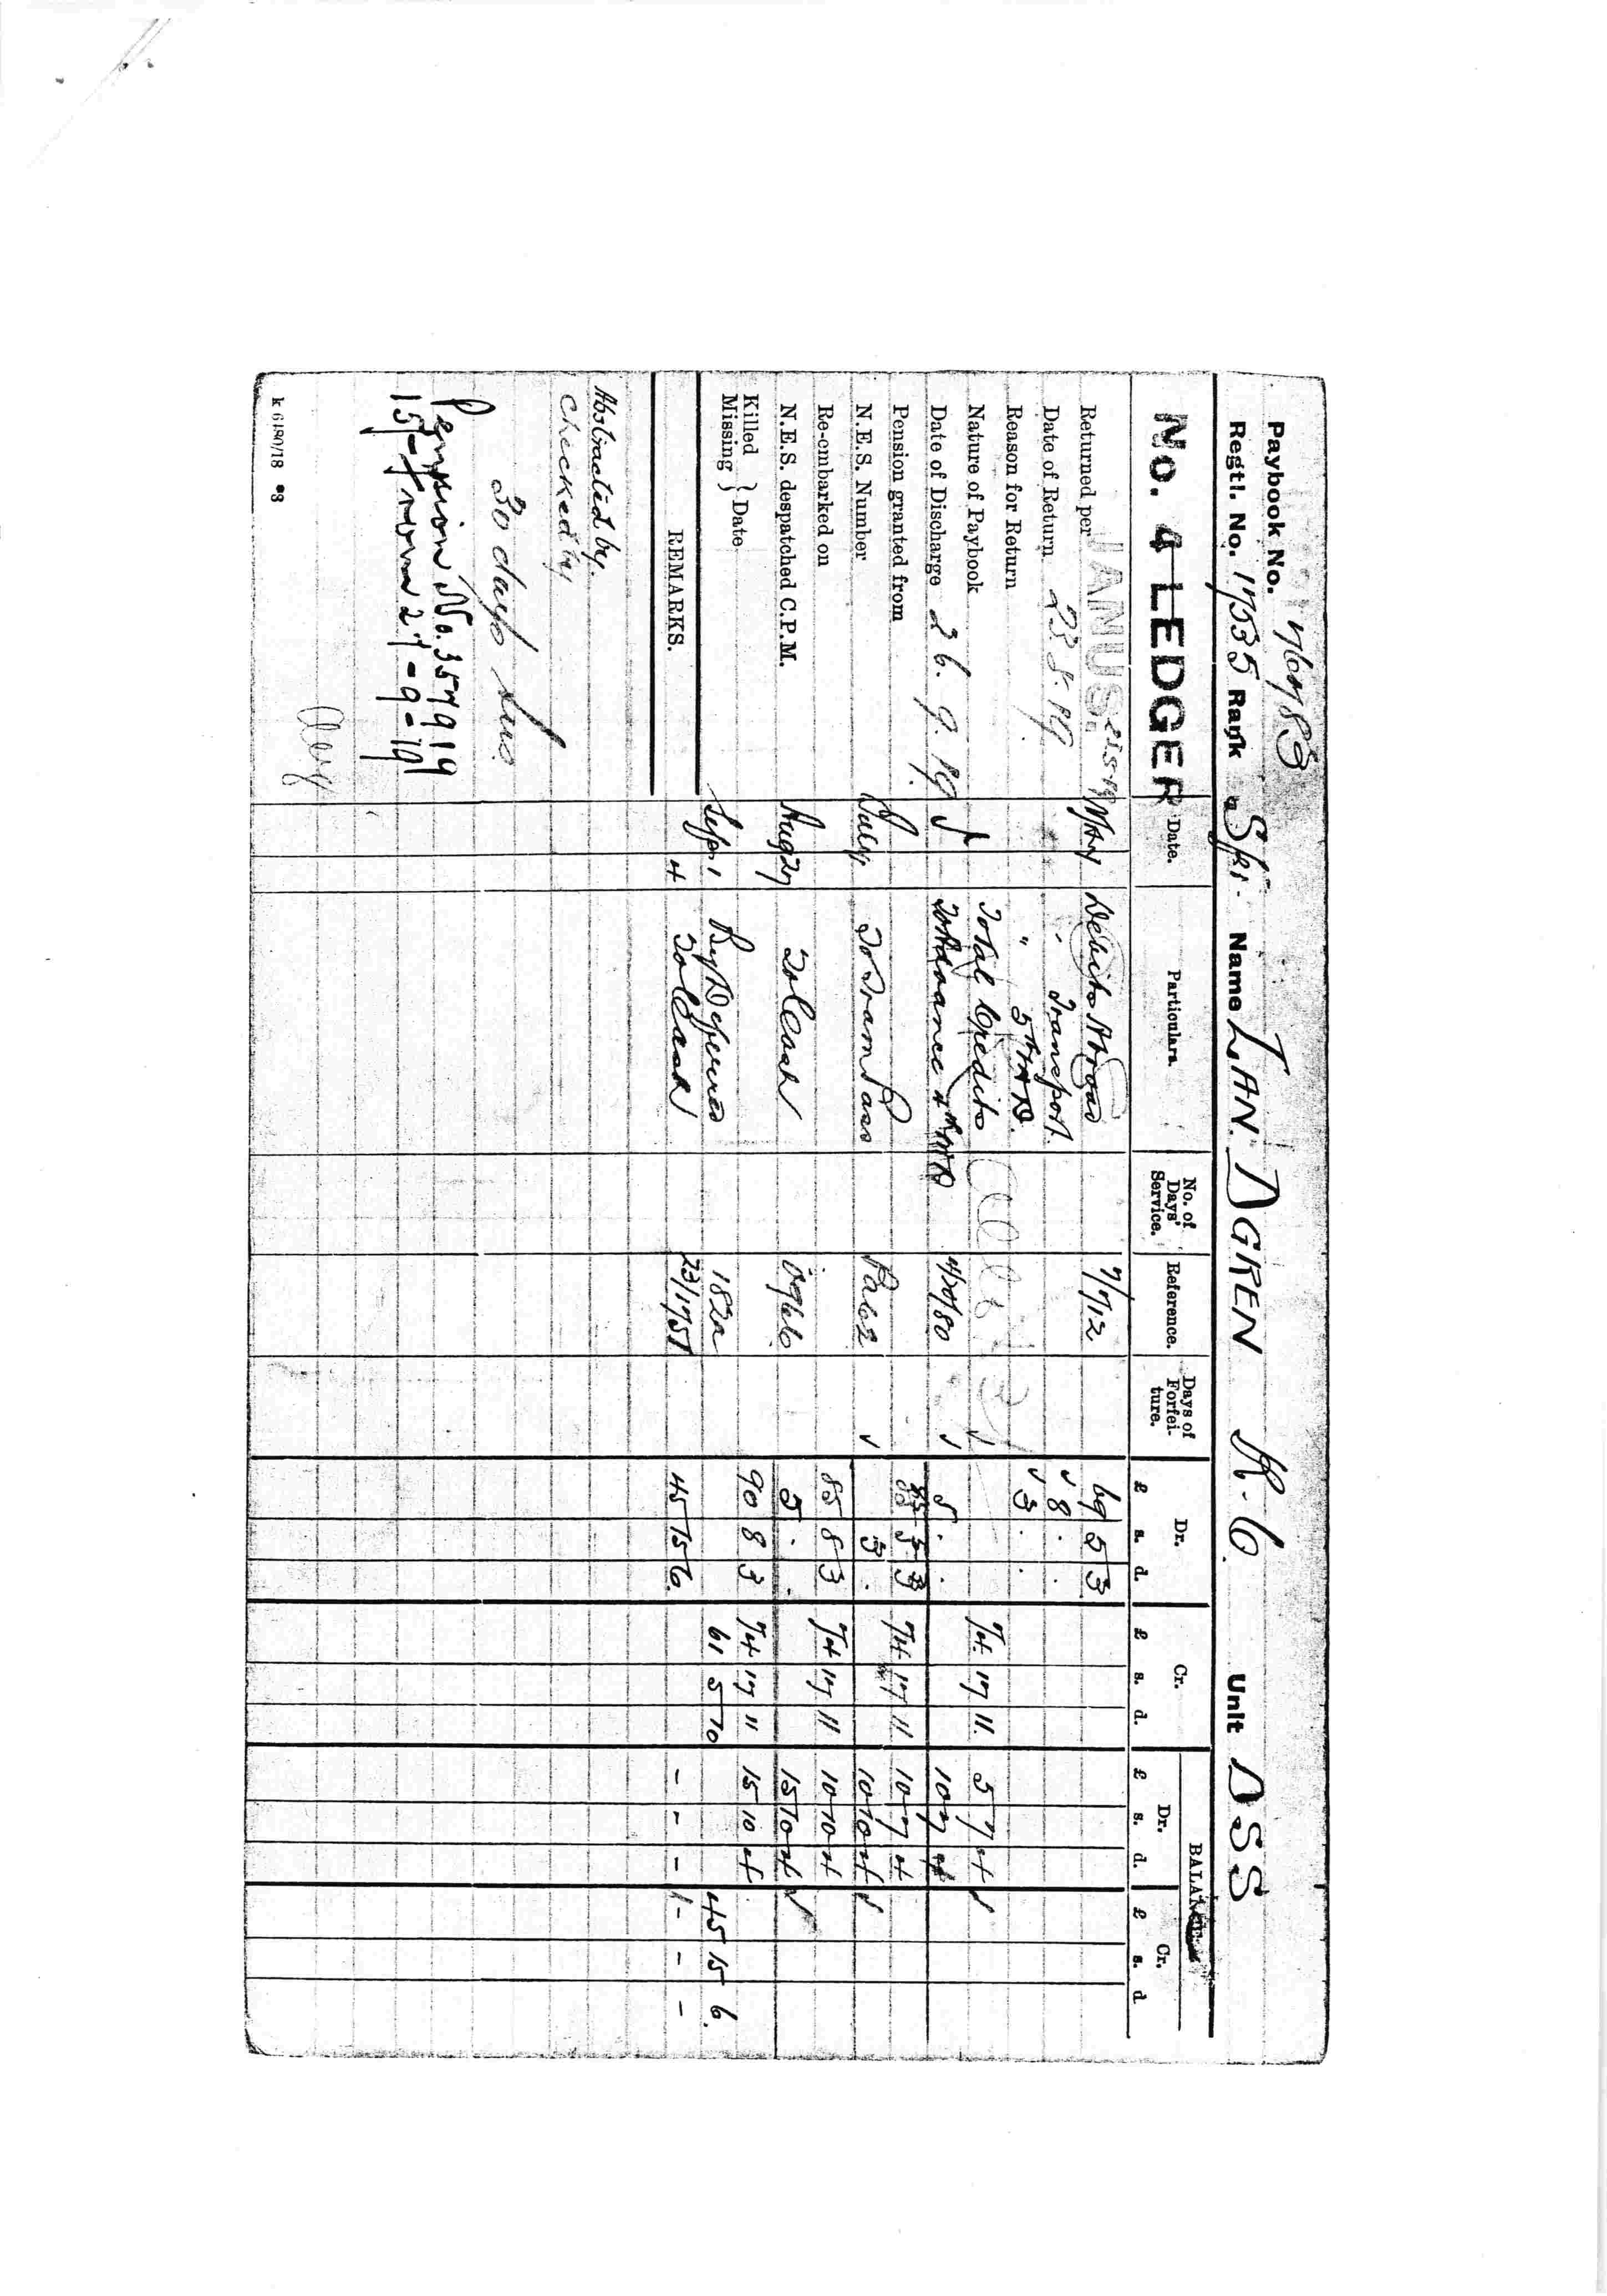 Paybook No. 76783
Regtl. No. 1735 Rank Spr. Name TANDGREN R. C. Unit DSS
No. 4 LEDGER
Date. Particulars. No. of Days' Service. Reference. Days of Forfeiture. Dr. Cr. BALANCE
Dr. Cr.
£ s. d. £ s. d. £ s. d. £ s. d.
Returned per JANUS. May Debits Abroad 7/7/12 69 5 3
Date of Return 23.8.19 " Transport. 8 . .
Reason for Return " 5th M.D. 3 . .
Nature of Paybook Total Credits 74 17 11 5 7 4
Date of Discharge 26.9.19 To Advance 4/20/80 5 . . 10 7 4
Pension granted from 85 5 3 74 17 11 10 7 4
N.E.S. Number July To Tram Pass Pa62 3 . 10 10 4
Re-embarked on 85 8 3 74 17 11 10 10 4
N.E.S. despatched C.P.M. Aug 27 To Cash 0966 5 . . 15 10 4
Killed
Missing } Date 90 8 3 74 17 11 15 10 4
Sep 1 By Deferred 182a 61 5 10 45 15 6
REMARKS. 4 To Cash 23/1757 45 15 6 - - - - - -
Abstracted by.
Checked by
30 days
Pension No. 357919
15/- from 27-9-19
k 6180/18